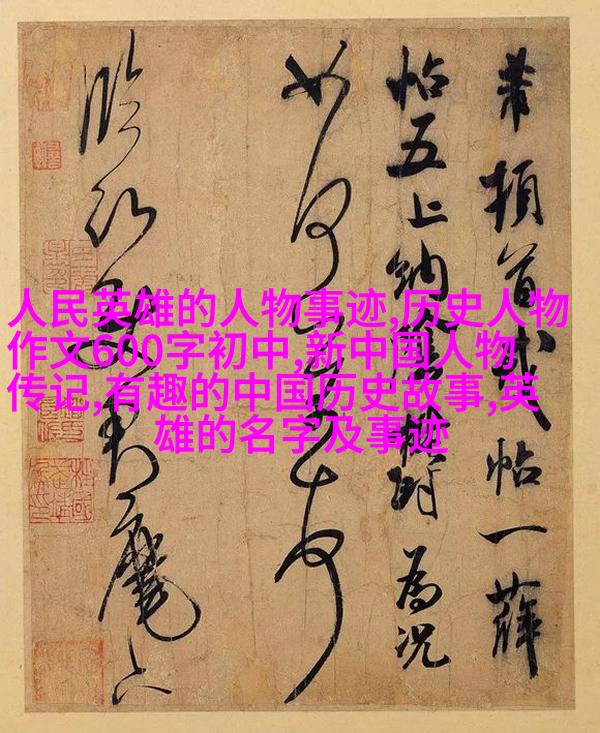 人民英雄的人物事迹,历史人物
作文600字初中,新中国人物,
传记,有趣的中国历史故事,英
雄的名字及事迹
芾頓首戎帖一薛
帖五上納為况
如何
臨沂使君麾下